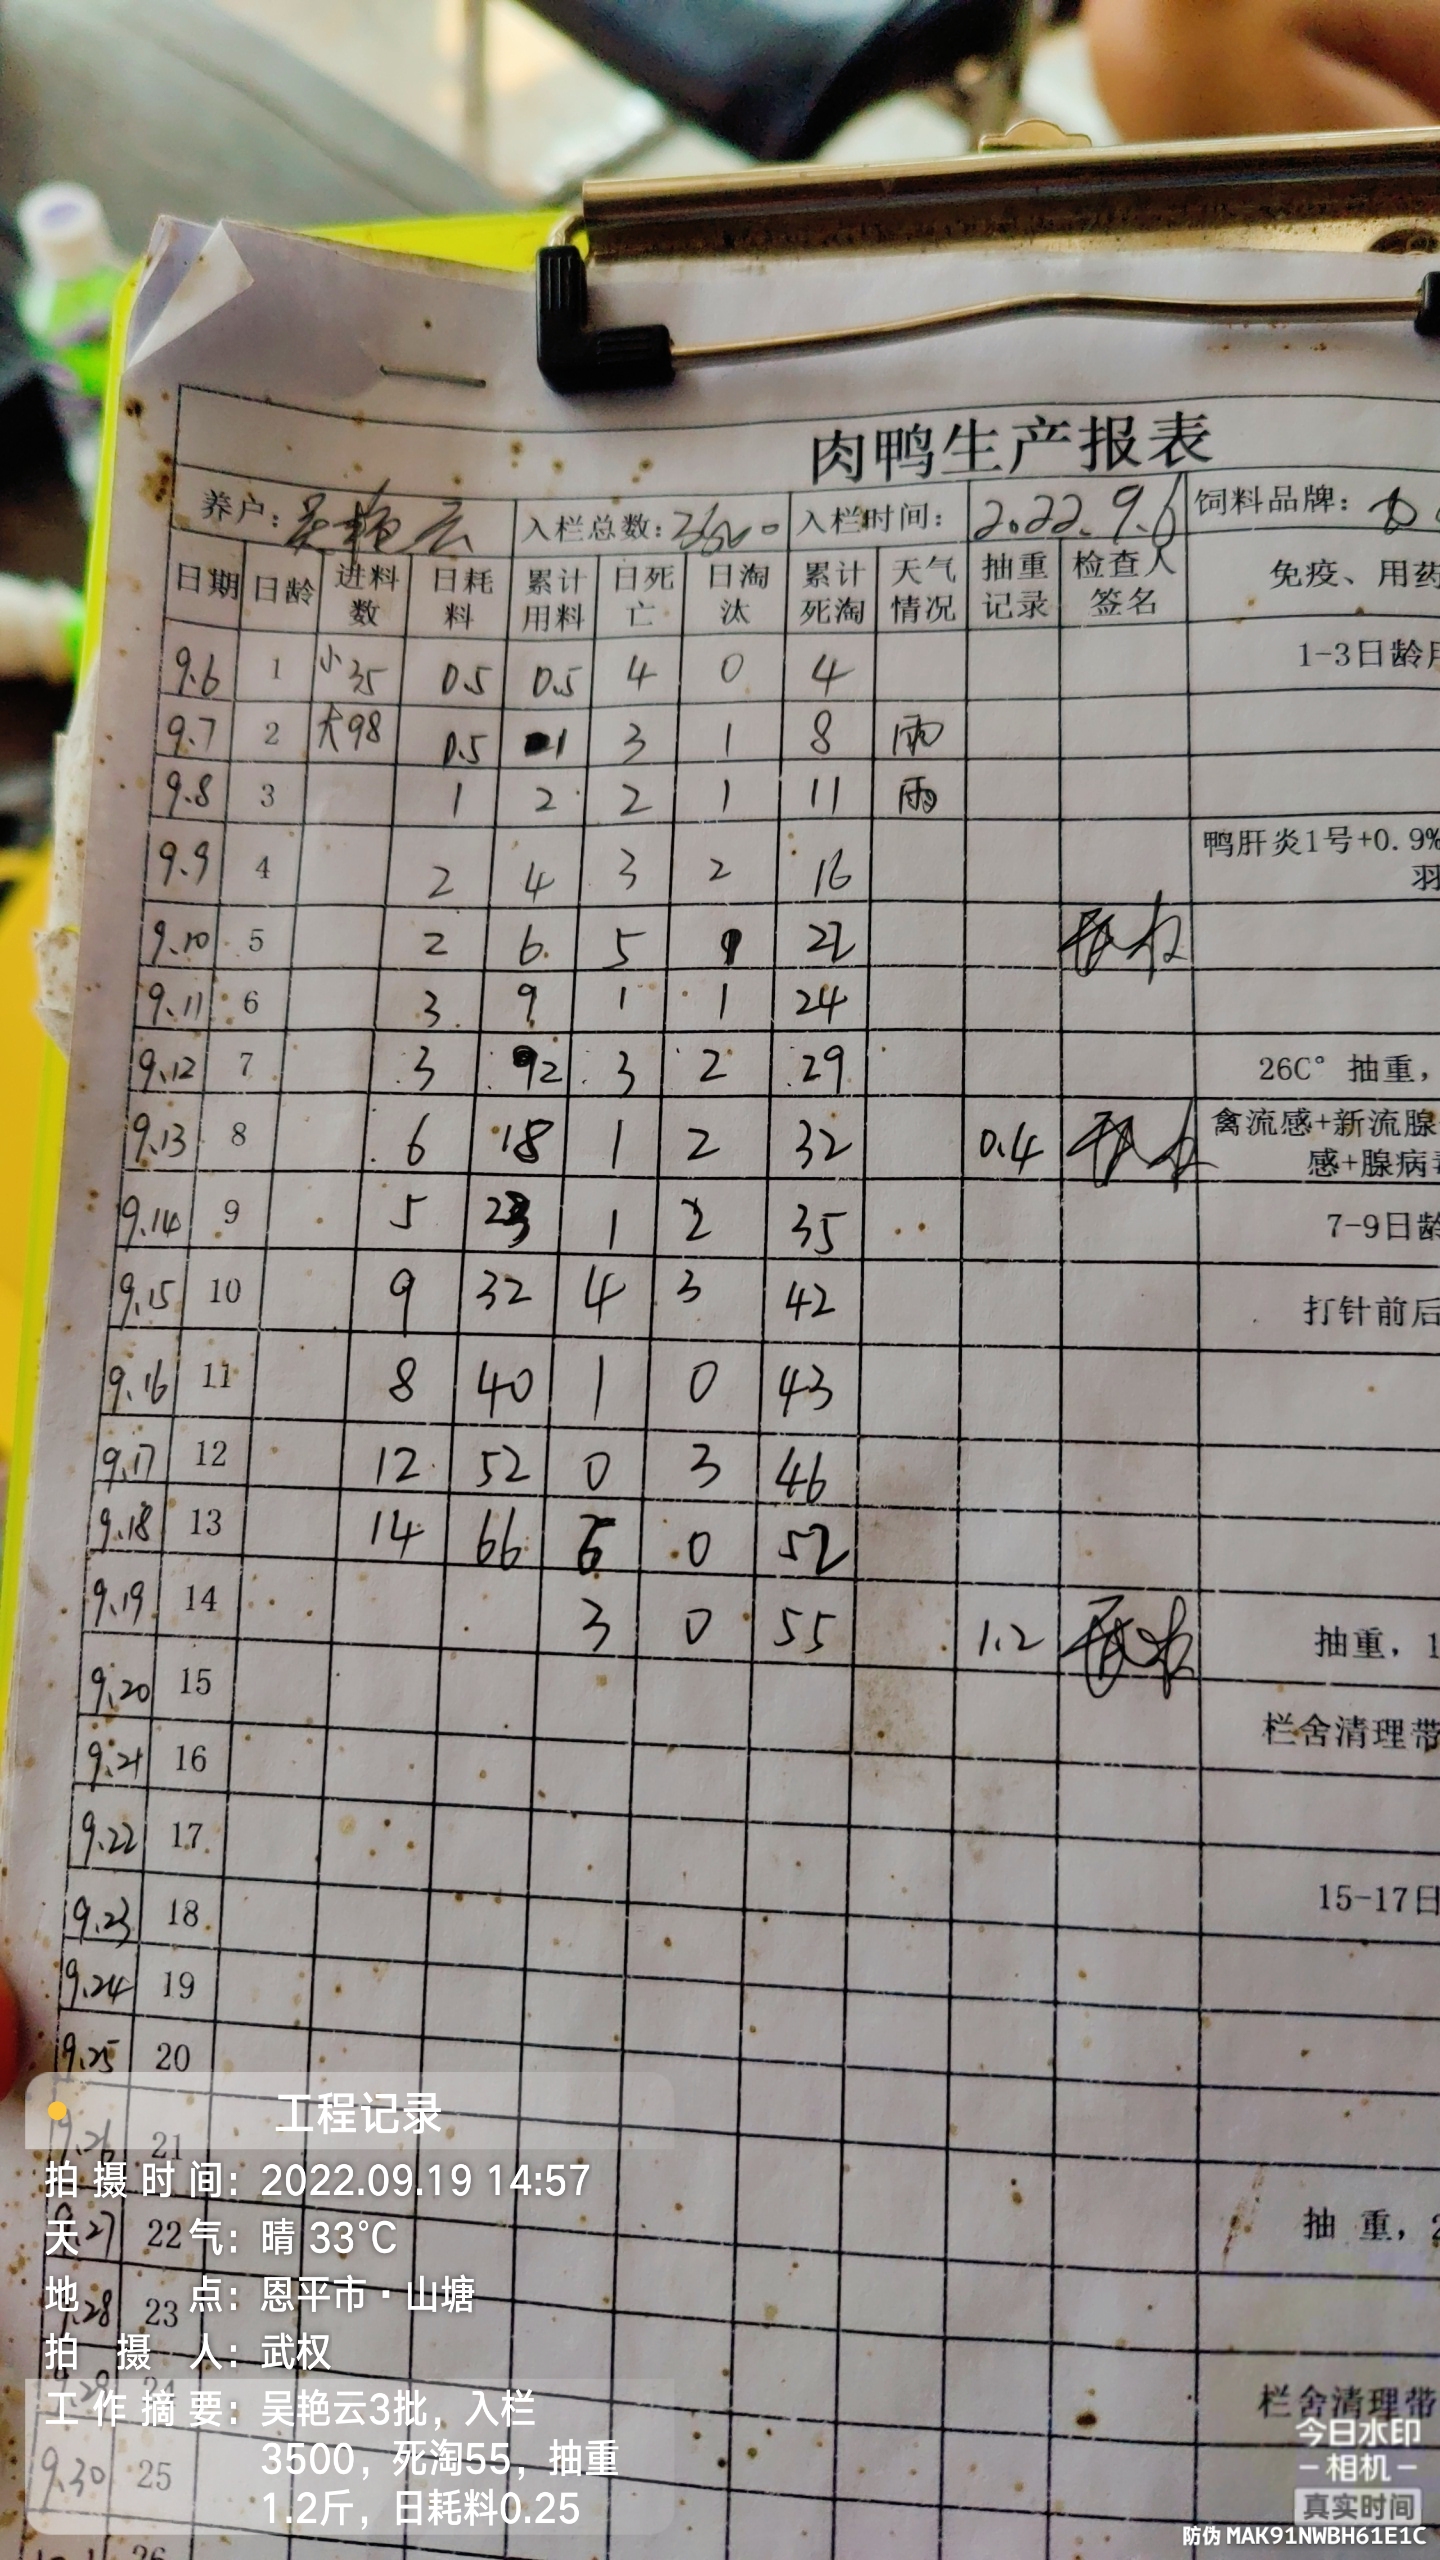 肉鸭生产报表
养户：吴艳云 入栏总数： 入栏时间： 2022.9.6 饲料品牌：
日期 日龄 进料数 日耗料 累计用料 日死亡 日淘汰 累计死淘 天气情况 抽重记录 检查人签名 免疫、用药
9.6 1 小35 0.5 0.5 4 0 4 1-3日龄
9.7 2 大98 0.5 1 3 1 8 雨
9.8 3 1 2 2 1 11 雨
9.9 4 2 4 3 2 16 鸭肝炎1号+0.9%
羽
9.10 5 2 6 5 1 22
9.11 6 3 9 1 1 24
9.12 7 3 12 3 2 29 26C° 抽重，
9.13 8 6 18 1 2 32 0.4 禽流感+新流腺
感+腺病毒
9.14 9 5 23 1 2 35 7-9日龄
9.15 10 9 32 4 3 42 打针前后
9.16 11 8 40 1 0 43
9.17 12 12 52 0 3 46
9.18 13 14 66 6 0 52
9.19 14 3 0 55 1.2 抽重，1
9.20 15 栏舍清理带
9.21 16
9.22 17
9.23 18 15-17日
9.24 19
9.25 20
9.26 21
9.27 22 抽 重，2
9.28 23
24 栏舍清理带
9.30 25
26
工程记录
拍摄时间：2022.09.19 14:57
天气：晴 33℃
地点：恩平市·山塘
拍摄人：武权
工作摘要：吴艳云3批，入栏
3500，死淘55，抽重
1.2斤，日耗料0.25
今日水印
-相机-
真实时间
防伪 MAK91NWBH61E1C